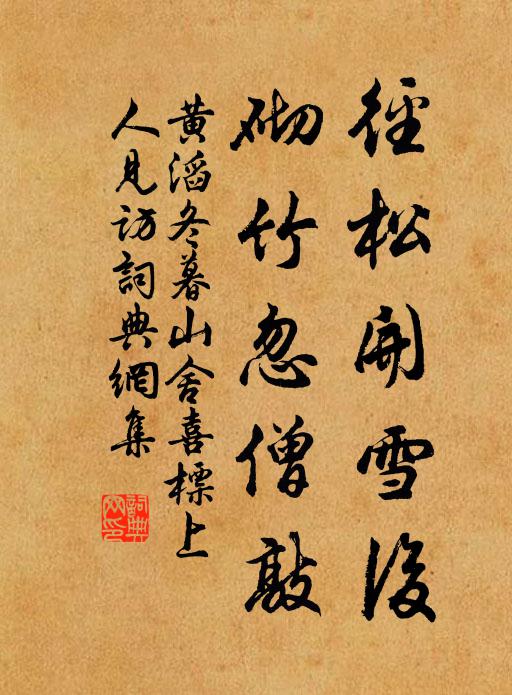 徑松開雪後
砌竹忽僧敲
黃滔冬暮山舍喜標上
人見訪詞典網集
詞典網印